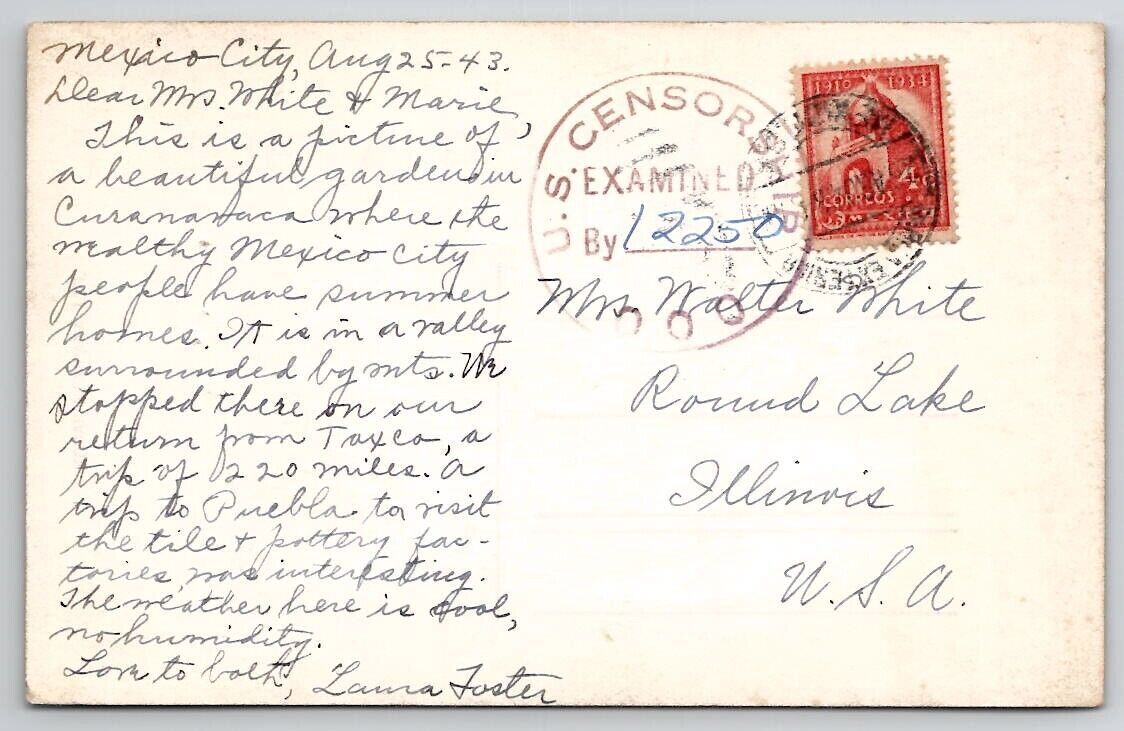 Mexico City, Aug 25-43.
Dear Mrs. White & Marie,
This is a picture of
a beautiful garden in
Curanavaca where the
wealthy Mexico City
people have summer
homes. It is in a valley
surrounded by mts. We
stopped there on our
return from Taxco, a
trip of 220 miles. A
trip to Puebla to visit
the tile & pottery fac-
tories was interesting.
The weather here is cool,
no humidity.
Love to both, Laura Foster
U.S. CENSOR
EXAMINED
By 12250
1910 1934
4
CORREOS
Mrs. Walter White
Round Lake
Illinois
U.S.A.